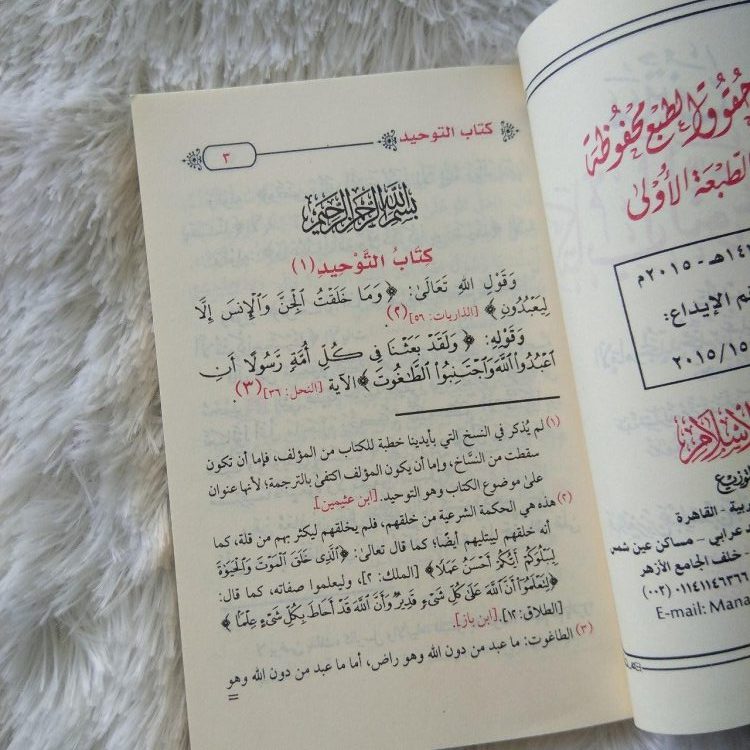 حقوق الطبع محفوظة
الطبعة الأولى
هـ - ٢٠١٥م
الإيداع:
٢٠١٥/١٥
للتوزيع
القاهرة
عرابي - مساكن عين شمس
خلف الجامع الأزهر
(٠٠٢) ٠١١٤١١٤٦٣٦٦
E-mail: Mana
كتاب التوحيد
٣
بسم الله الرحمن الرحيم
كِتَابُ التَّوْحِيدِ (١)
وَقَوْلِ اللهِ تَعَالَىٰ: ﴿ وَمَا خَلَقْتُ ٱلْجِنَّ وَٱلْإِنسَ إِلَّا
لِيَعْبُدُونِ ﴾ [الذاريات: ٥٦] (٢).
وَقَوْلِهِ: ﴿ وَلَقَدْ بَعَثْنَا فِي كُلِّ أُمَّةٍ رَّسُولًا أَنِ
ٱعْبُدُوا۟ ٱللَّهَ وَٱجْتَنِبُوا۟ ٱلطَّٰغُوتَ ﴾ الآية [النحل: ٣٦] (٣).
(١) لم يُذكر في النسخ التي بأيدينا خطبة للكتاب من المؤلف، فإما أن تكون
سقطت من النسَّاخ، وإما أن يكون المؤلف اكتفىٰ بالترجمة؛ لأنها عنوان
علىٰ موضوع الكتاب وهو التوحيد. [ابن عثيمين].
(٢) هذه هي الحكمة الشرعية من خلقهم، فلم يخلقهم ليكثر بهم من قلة، كما
أنه خلقهم ليبتليهم أيضًا؛ كما قال تعالىٰ: ﴿ٱلَّذِى خَلَقَ ٱلْمَوْتَ وَٱلْحَيَوٰةَ
لِيَبْلُوَكُمْ أَيُّكُمْ أَحْسَنُ عَمَلًا ﴾ [الملك: ٢]، وليعلموا صفاته، كما قال:
﴿لِتَعْلَمُوٓا۟ أَنَّ ٱللَّهَ عَلَىٰ كُلِّ شَىْءٍ قَدِيرٌ وَأَنَّ ٱللَّهَ قَدْ أَحَاطَ بِكُلِّ شَىْءٍ عِلْمًۢا ﴾
[الطلاق: ١٢]. [ابن باز].
(٣) الطاغوت: ما عبد من دون الله وهو راض، أما ما عبد من دون الله وهو
=